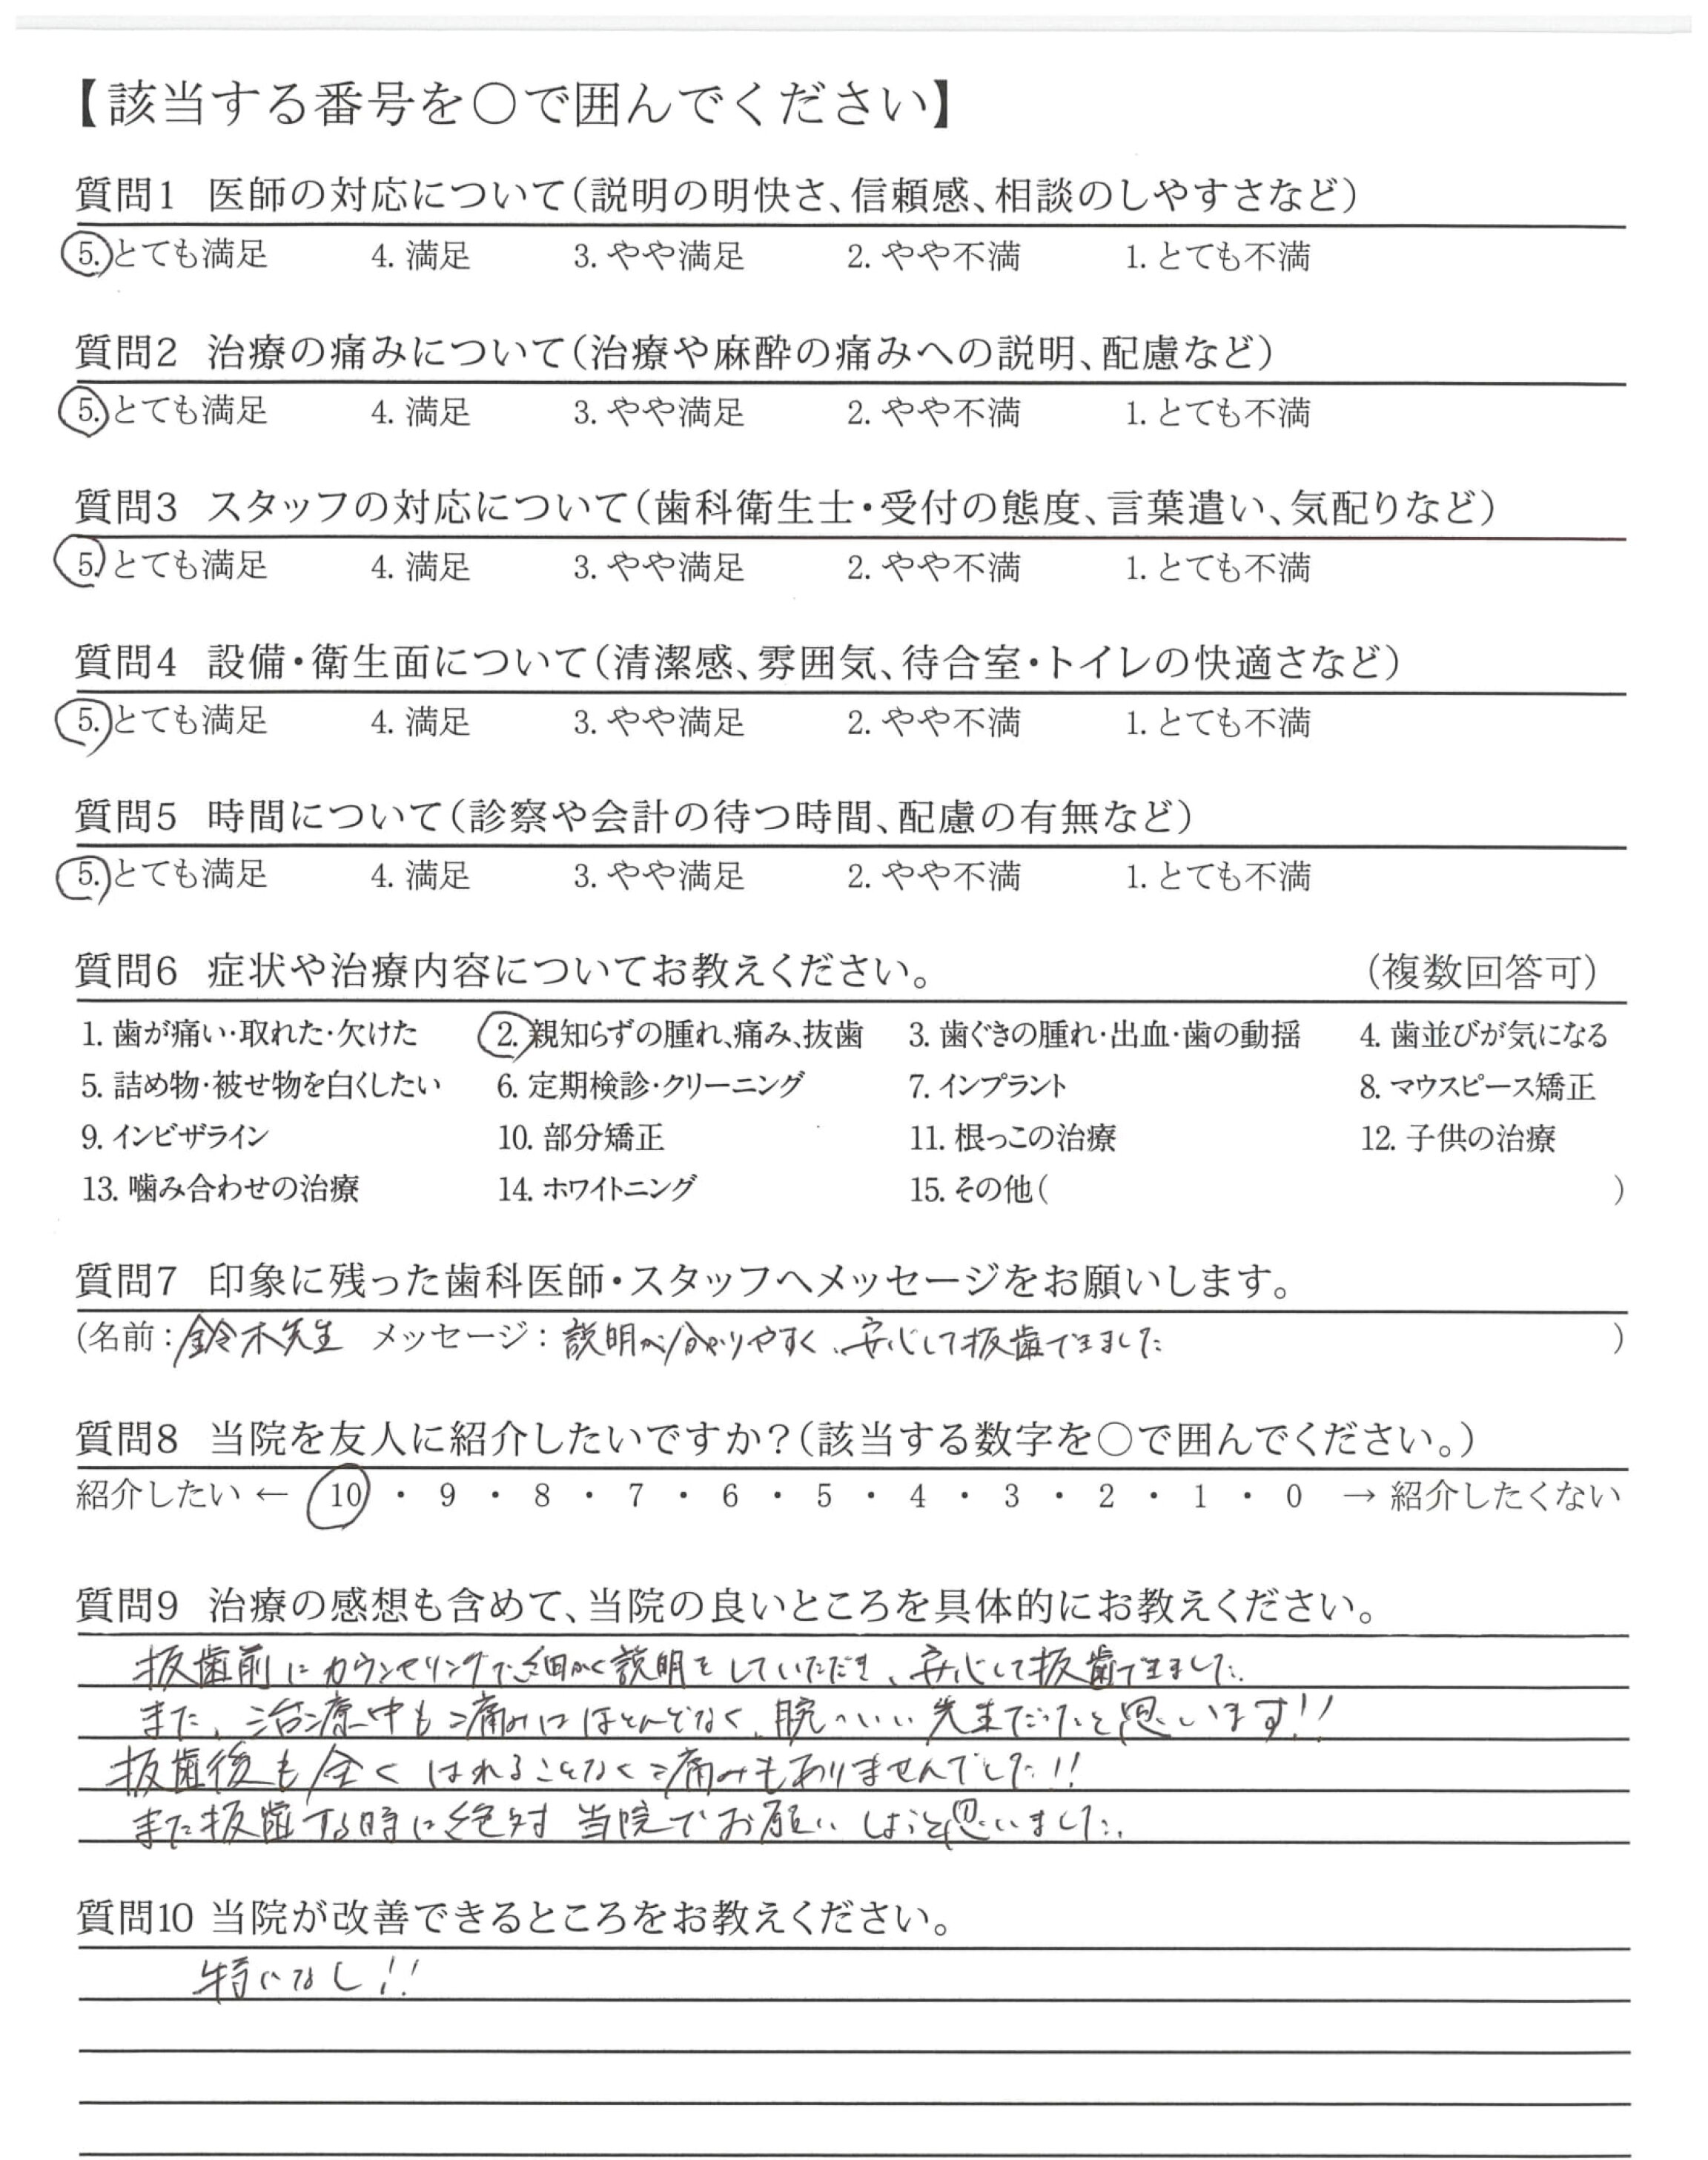 【該当する番号を○で囲んでください】
質問1 医師の対応について(説明の明快さ、信頼感、相談のしやすさなど)
5. とても満足 4. 満足 3. やや満足 2. やや不満 1. とても不満
質問2 治療の痛みについて(治療や麻酔の痛みへの説明、配慮など)
5. とても満足 4. 満足 3. やや満足 2. やや不満 1. とても不満
質問3 スタッフの対応について(歯科衛生士・受付の態度、言葉遣い、気配りなど)
5. とても満足 4. 満足 3. やや満足 2. やや不満 1. とても不満
質問4 設備・衛生面について(清潔感、雰囲気、待合室・トイレの快適さなど)
5. とても満足 4. 満足 3. やや満足 2. やや不満 1. とても不満
質問5 時間について(診察や会計の待つ時間、配慮の有無など)
5. とても満足 4. 満足 3. やや満足 2. やや不満 1. とても不満
質問6 症状や治療内容についてお教えください。 (複数回答可)
1. 歯が痛い・取れた・欠けた 2. 親知らずの腫れ、痛み、抜歯 3. 歯ぐきの腫れ・出血・歯の動揺 4. 歯並びが気になる
5. 詰め物・被せ物を白くしたい 6. 定期検診・クリーニング 7. インプラント 8. マウスピース矯正
9. インビザライン 10. 部分矯正 11. 根っこの治療 12. 子供の治療
13. 噛み合わせの治療 14. ホワイトニング 15. その他( )
質問7 印象に残った歯科医師・スタッフへメッセージをお願いします。
(名前:鈴木先生 メッセージ:説明が分かりやすく、安心して抜歯できました )
質問8 当院を友人に紹介したいですか?(該当する数字を○で囲んでください。)
紹介したい ← 10 ・ 9 ・ 8 ・ 7 ・ 6 ・ 5 ・ 4 ・ 3 ・ 2 ・ 1 ・ 0 → 紹介したくない
質問9 治療の感想も含めて、当院の良いところを具体的にお教えください。
抜歯前にカウンセリングで細かく説明をしていただき、安心して抜歯できました。
また、治療中も痛みはほとんどなく、腕のいい先生だったと思います!!
抜歯後も全くはれることなく痛みもありませんでした!!
また抜歯する時は絶対当院でお願いしようと思いました。
質問10 当院が改善できるところをお教えください。
特になし!!